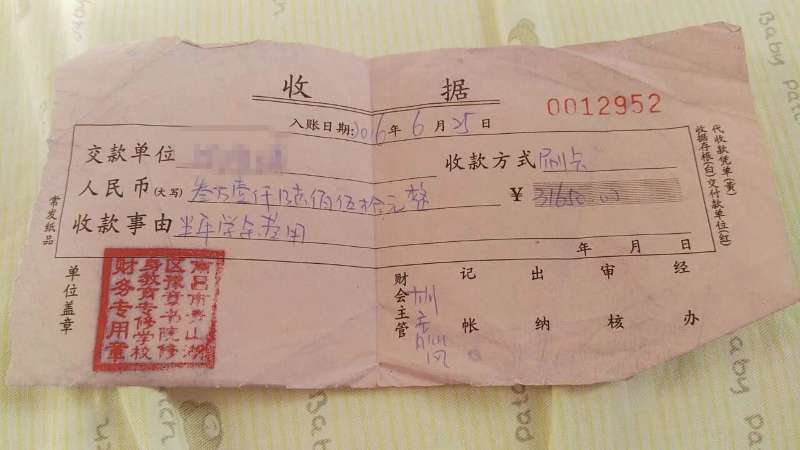 收据
0012952
入账日期:2016年6月25日
交款单位
收款方式 刷卡
人民币(大写) 叁万壹仟陆佰伍拾元整
¥ 31650.00
收款事由 半年学杂费用
年 月 日
代收款凭单(黄)
收据存根(白)交付款单位(红)
常发纸品
单位盖章
南昌市青山湖
区豫章书院修
身教育专修学校
财务专用章
财会主管
记帐
出纳
审核
经办
Baby patch
Baby patch
Baby patch